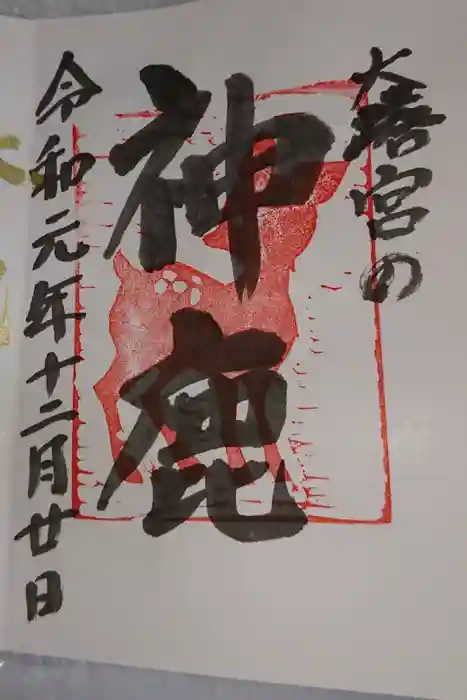 大善宮の
神鹿
令和元年十二月廿日